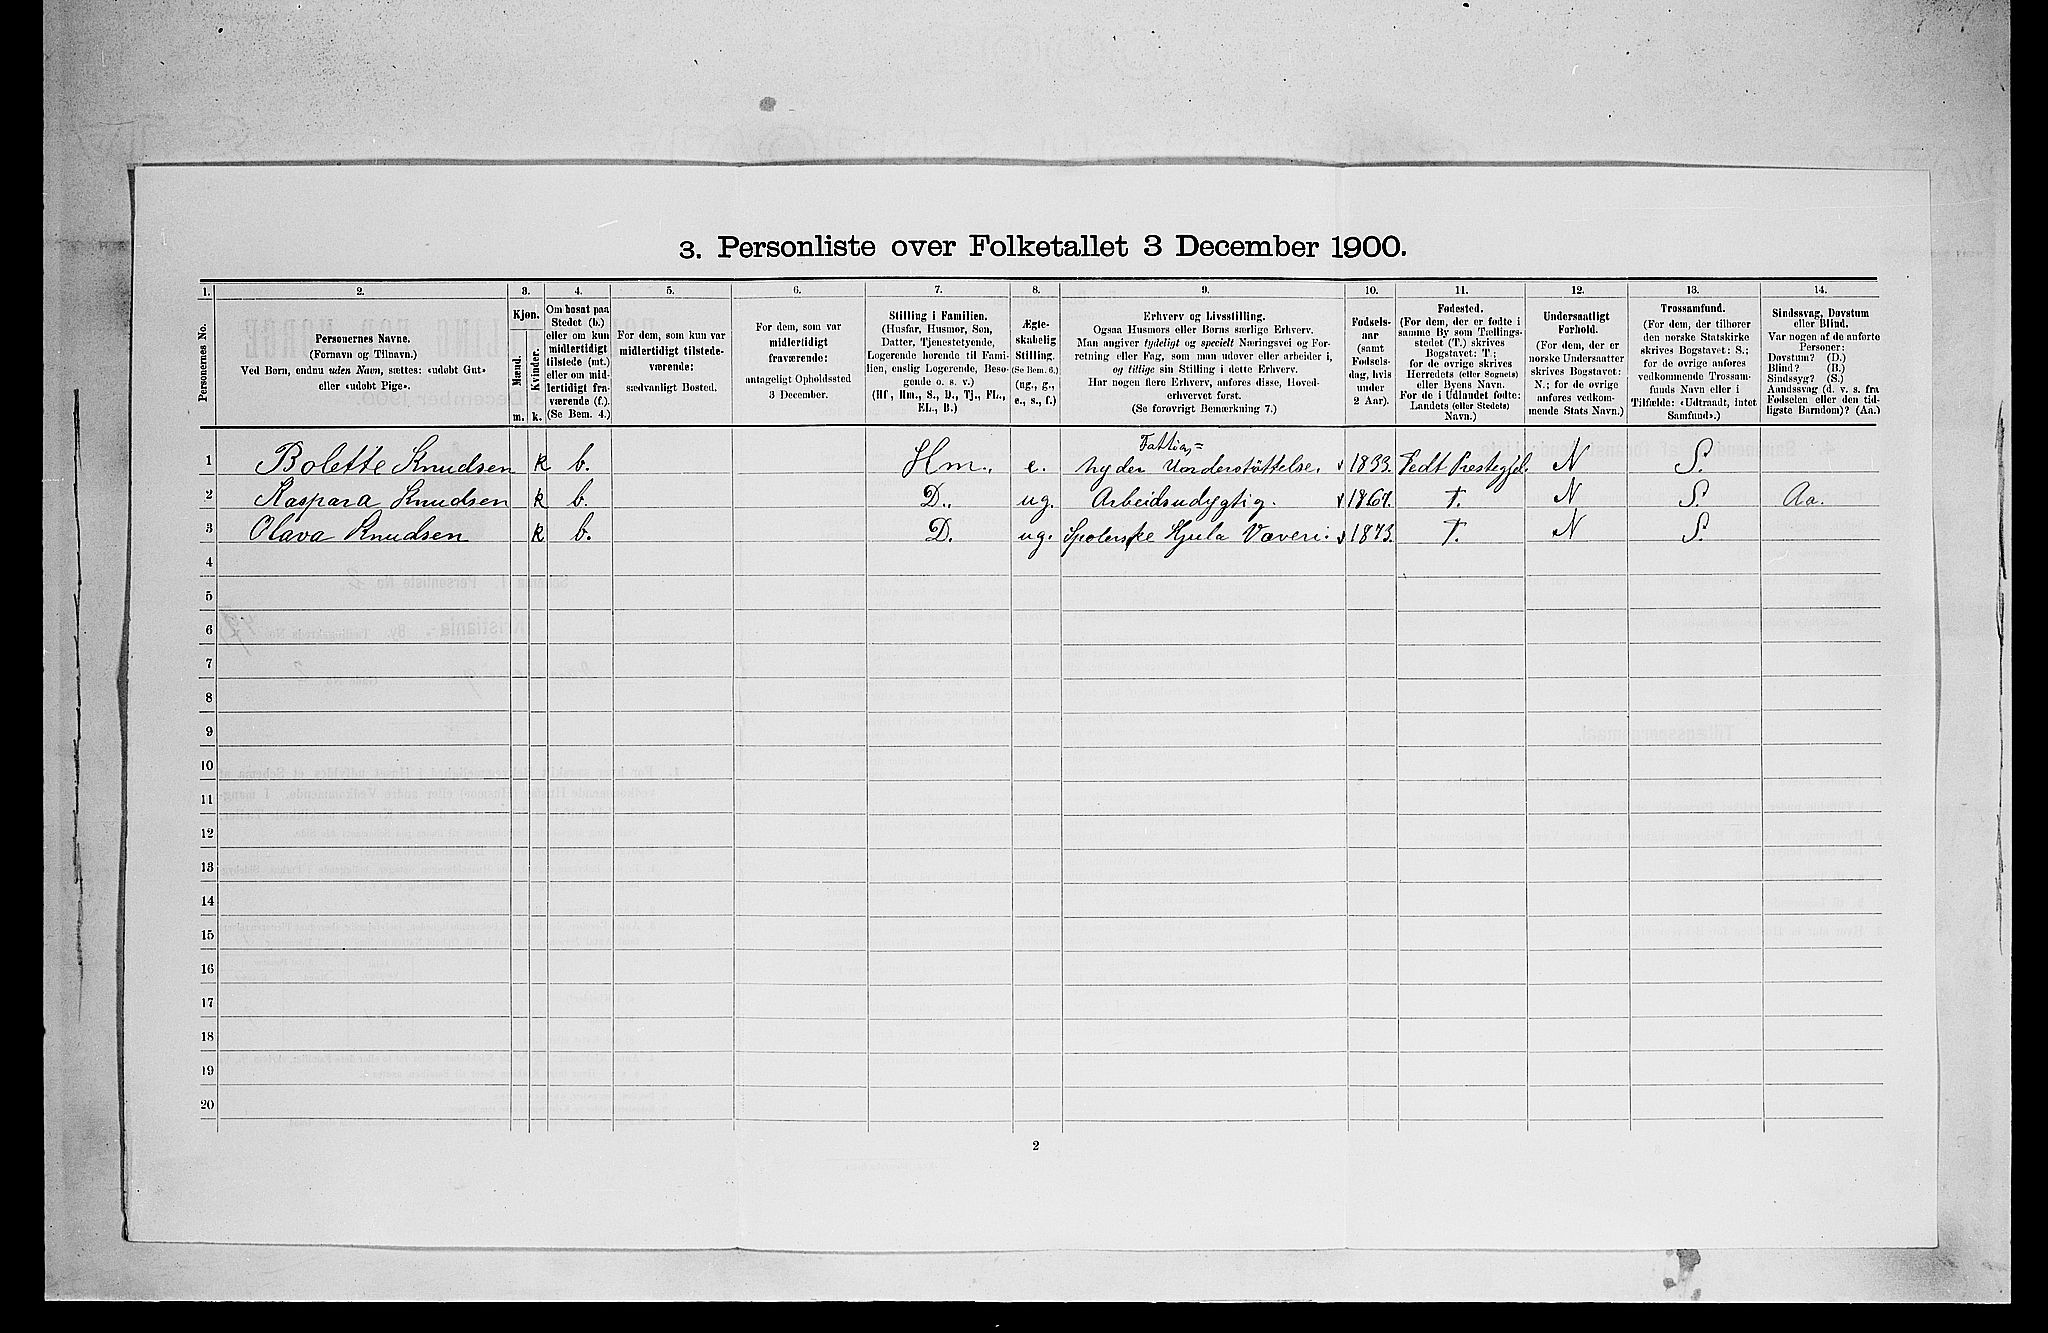 3. Personliste over Folketallet 3 December 1900.
1. 2. 3. 4. 5. 6. 7. 8. 9. 10. 11. 12. 13. 14.
Personernes No.
Personernes Navne.
(Fornavn og Tilnavn.)
Ved Børn, endnu uden Navn, sættes: «udøbt Gut»
eller «udøbt Pige».
Kjøn.
Mænd.
Kvinder.
m. k.
Om bosat paa
Stedet (b.)
eller om kun
midlertidigt
tilstede (mt.)
eller om mid-
lertidigt fra-
værende (f.).
(Se Bem. 4.)
For dem, som kun var
midlertidigt tilstede-
værende:
sædvanligt Bosted.
For dem, som var
midlertidigt
fraværende:
antageligt Opholdssted
3 December.
Stilling i Familien.
(Husfar, Husmor, Søn,
Datter, Tjenestetyende,
Logerende hørende til Fami-
lien, enslig Logerende, Besø-
gende o. s. v.)
(Hf, Hm., S., D., Tj., FL.,
EL., B.)
Ægte-
skabelig
Stilling.
(Se Bem. 6.)
(ug., g.,
e., s., f.)
Erhverv og Livsstilling.
Ogsaa Husmors eller Børns særlige Erhverv.
Man angiver tydeligt og specielt Næringsvei og For-
retning eller Fag, som man udøver eller arbeider i,
og tillige sin Stilling i dette Erhverv.
Har nogen flere Erhverv, anføres disse, Hoved-
erhvervet først.
(Se forøvrigt Bemærkning 7.)
Fødsels-
aar
(samt
Fødsels-
dag, hvis
under
2 Aar).
Fødested.
(For dem, der er fødte i
samme By som Tællings-
stedet (T.) skrives
Bogstavet: T;
for de øvrige skrives
Herredets (eller Sognets)
eller Byens Navn.
For de i Udlandet fødte:
Landets (eller Stedets)
Navn.)
Undersaatligt
Forhold.
(For dem, der er
norske Undersaatter
skrives Bogstavet:
N.; for de øvrige
anføres vedkom-
mende Stats Navn.)
Trossamfund.
(For dem, der tilhører
den norske Statskirke
skrives Bogstavet: S.;
for de øvrige anføres
vedkommende Trossam-
funds Navn eller i
Tilfælde: «Udtraadt, intet
Samfund».)
Sindssvag, Døvstum
eller Blind.
Var nogen af de anførte
Personer:
Døvstum? (D.)
Blind? (B.)
Sindssyg? (S.)
Aandssvag (d. v. s. fra
Fødselen eller den tid-
ligste Barndom)? (Aa.)
1 Bolette Knudsen k b. Hm. e. Fattig= nyder Understöttelse. 1833. Prestegjel. N S.
2 Kaspara Knudsen k b. D. ug. Arbeidsudygtig. 1867. T. N S. Aa.
3 Olava Knudsen k b. D. ug. Spolerske Hjula Væveri. 1873. T. N S.
4
5
6
7
8
9
10
11
12
13
14
15
16
17
18
19
20
2